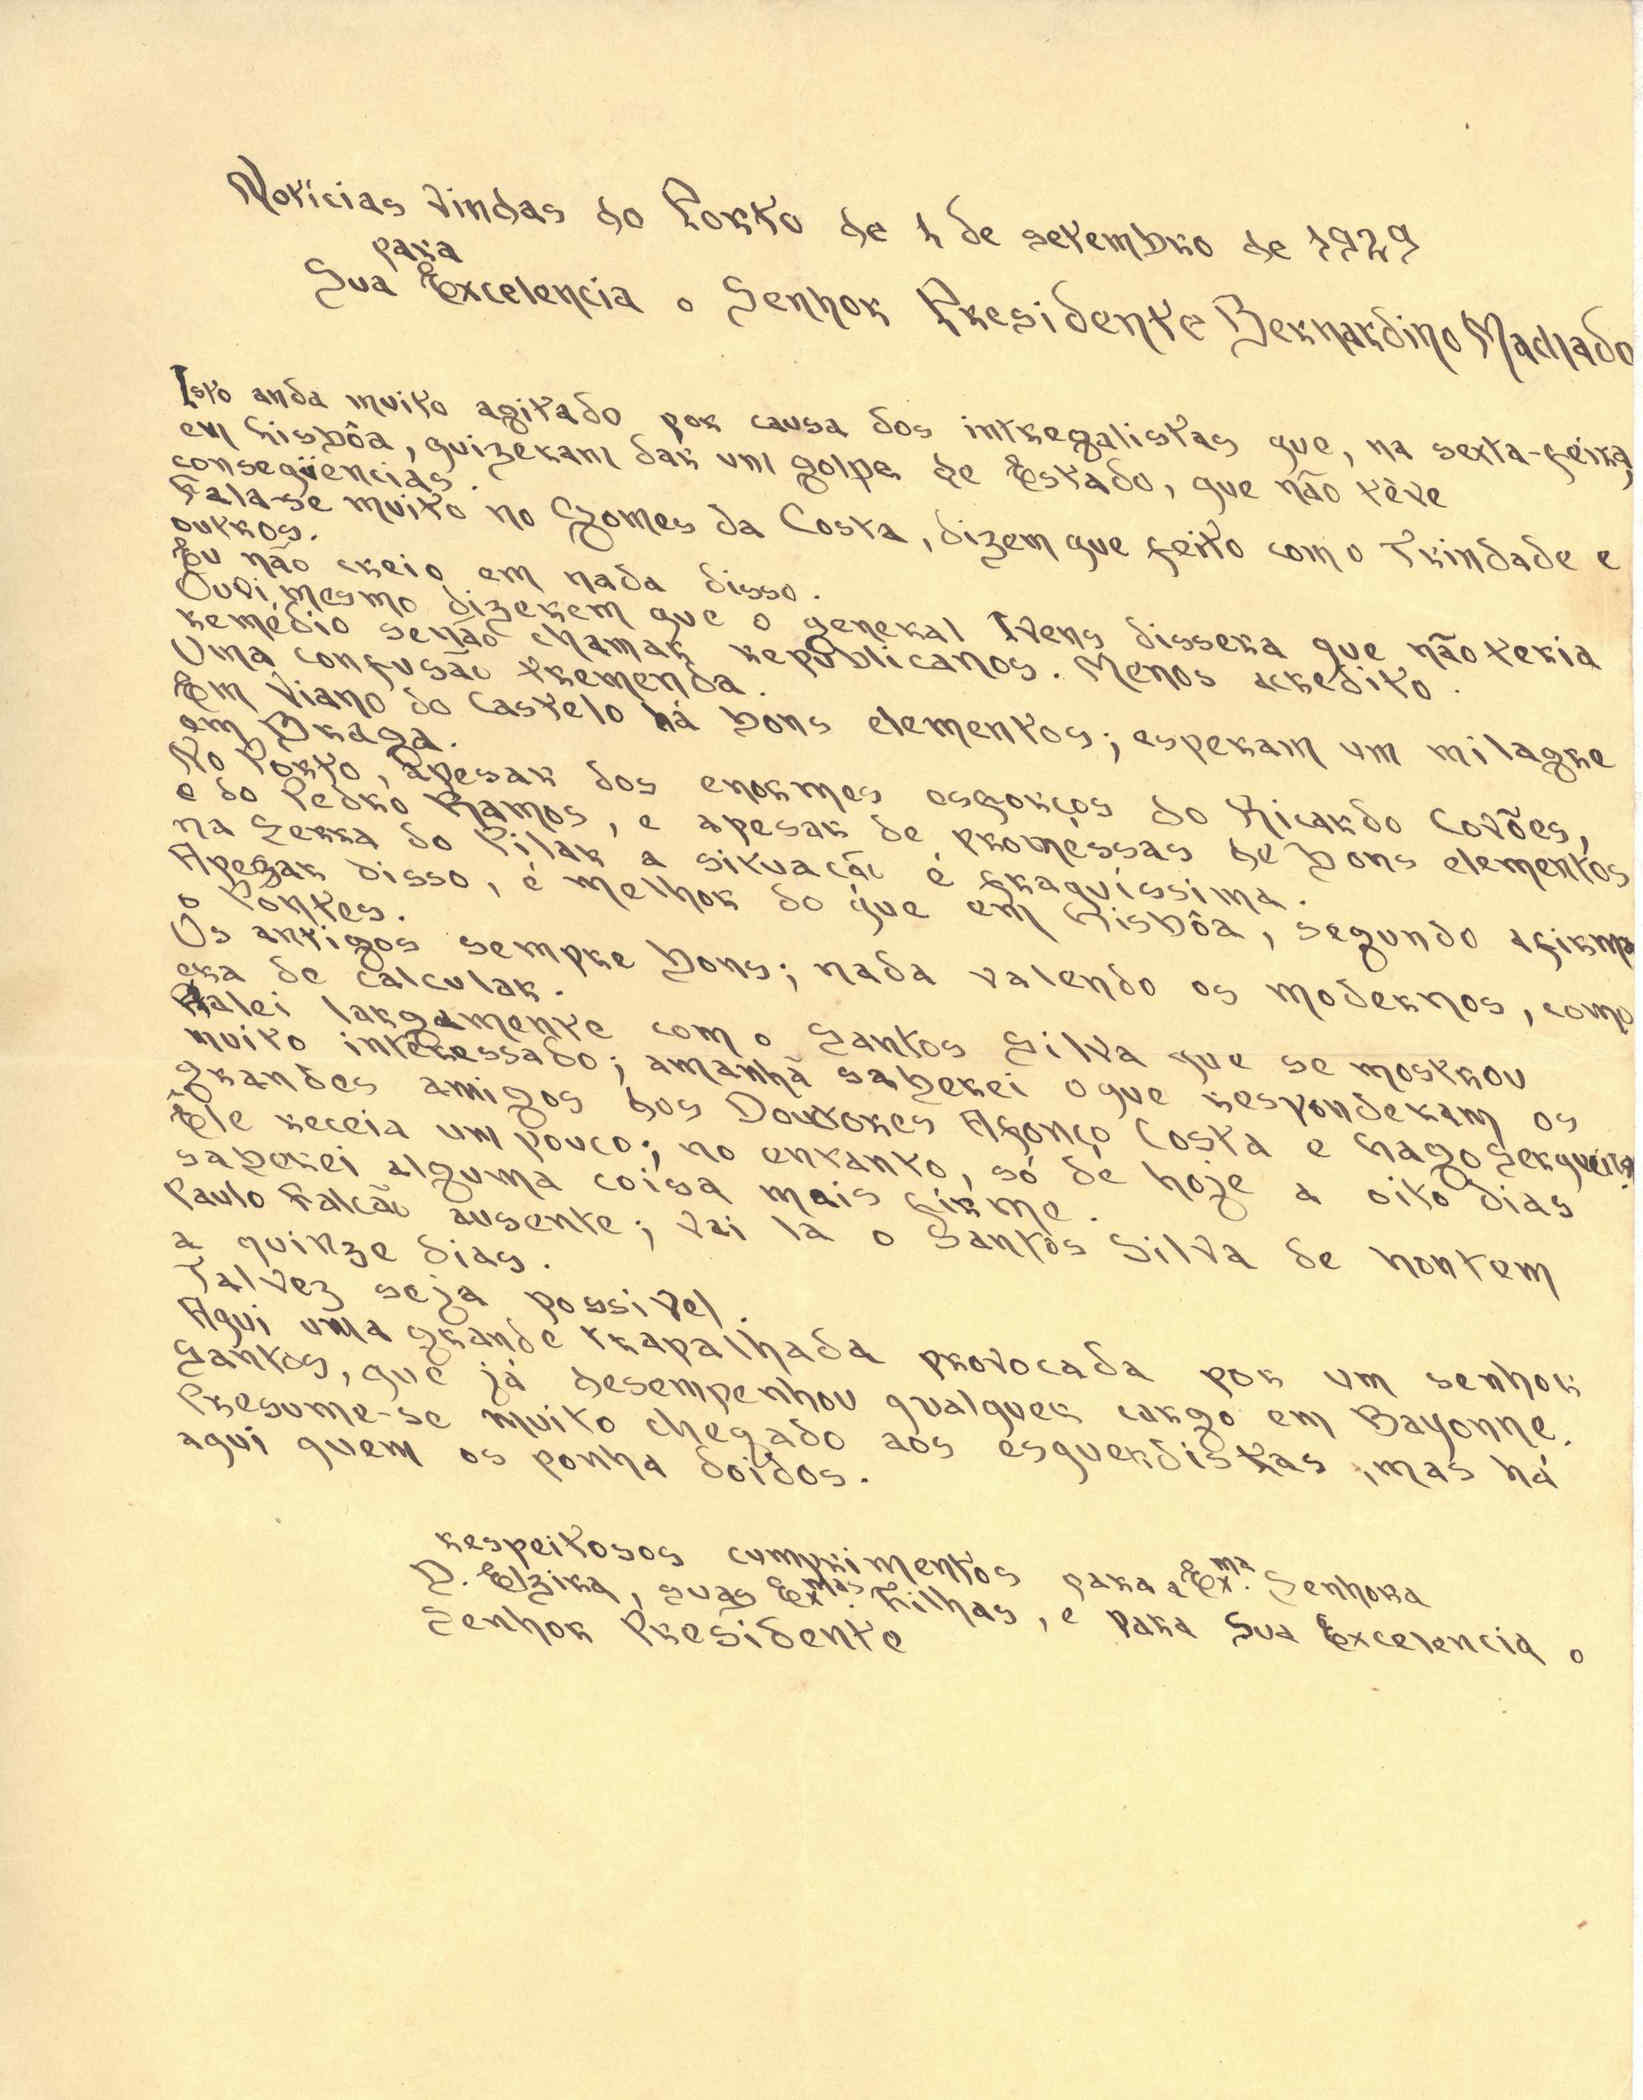 Notícias vindas do Porto de 1 de setembro de 1929
para
Sua Excelencia o Senhor Presidente Bernardino Machado
Isto anda muito agitado por causa dos integralistas que, na sexta-feira,
em Lisbôa, quizeram dar um golpe de Estado, que não tève
conseqüencias.
Fala-se muito no Gomes da Costa, dizem que feito com o Trindade e
outros.
Eu não creio em nada disso.
Ouvi mesmo dizerem que o general Ivens dissera que não teria
remédio senão chamar republicanos. Menos acredito.
Uma confusão tremenda.
Em Viano do Castelo há bons elementos; esperam um milagre
em Braga.
No Porto, apesar dos enormes esforços do Ricardo Covões,
e do Pedro Ramos, e apesar de promessas de bons elementos
na Serra do Pilar a situação é fraquíssima.
Apezar disso, é melhor do que em Lisbôa, segundo afirma
o Pontes.
Os antigos sempre bons; nada valendo os modernos, como
era de calcular.
Falei largamente com o Santos Silva que se mostrou
muito interessado; amanhã saberei o que responderam os
grandes amigos dos Doutores Afonço Costa e Lago Serqueira.
Êle receia um pouco; no entanto, só de hoje a oito dias
saberei alguma coisa mais firme.
Paulo Falcão ausente; vai lá o Santos Silva de hontem
a quinze dias.
Talvez seja possivel.
Aqui uma grande trapalhada provocada por um senhor
Santos, que já desempenhou qualquer cargo em Bayonne.
Presume-se muito chegado aos esquerdistas, mas há
aqui quem os ponha doidos.
respeitosos cumprimentos para a Exma. Senhora
D. Elzira, suas Exmas. Filhas, e para Sua Excelencia o
Senhor Presidente